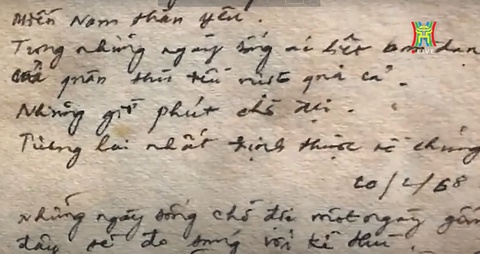 Miền Nam thân yêu.
Trong những ngày sống ác liệt bom đạn
quân thù
Những giờ phút chờ đợi.
Tương lai nhất định thuộc về chúng
/68
Những ngày sống chờ đợi một ngày gần
đây sẽ đọ súng với kẻ thù.
H
LIVE